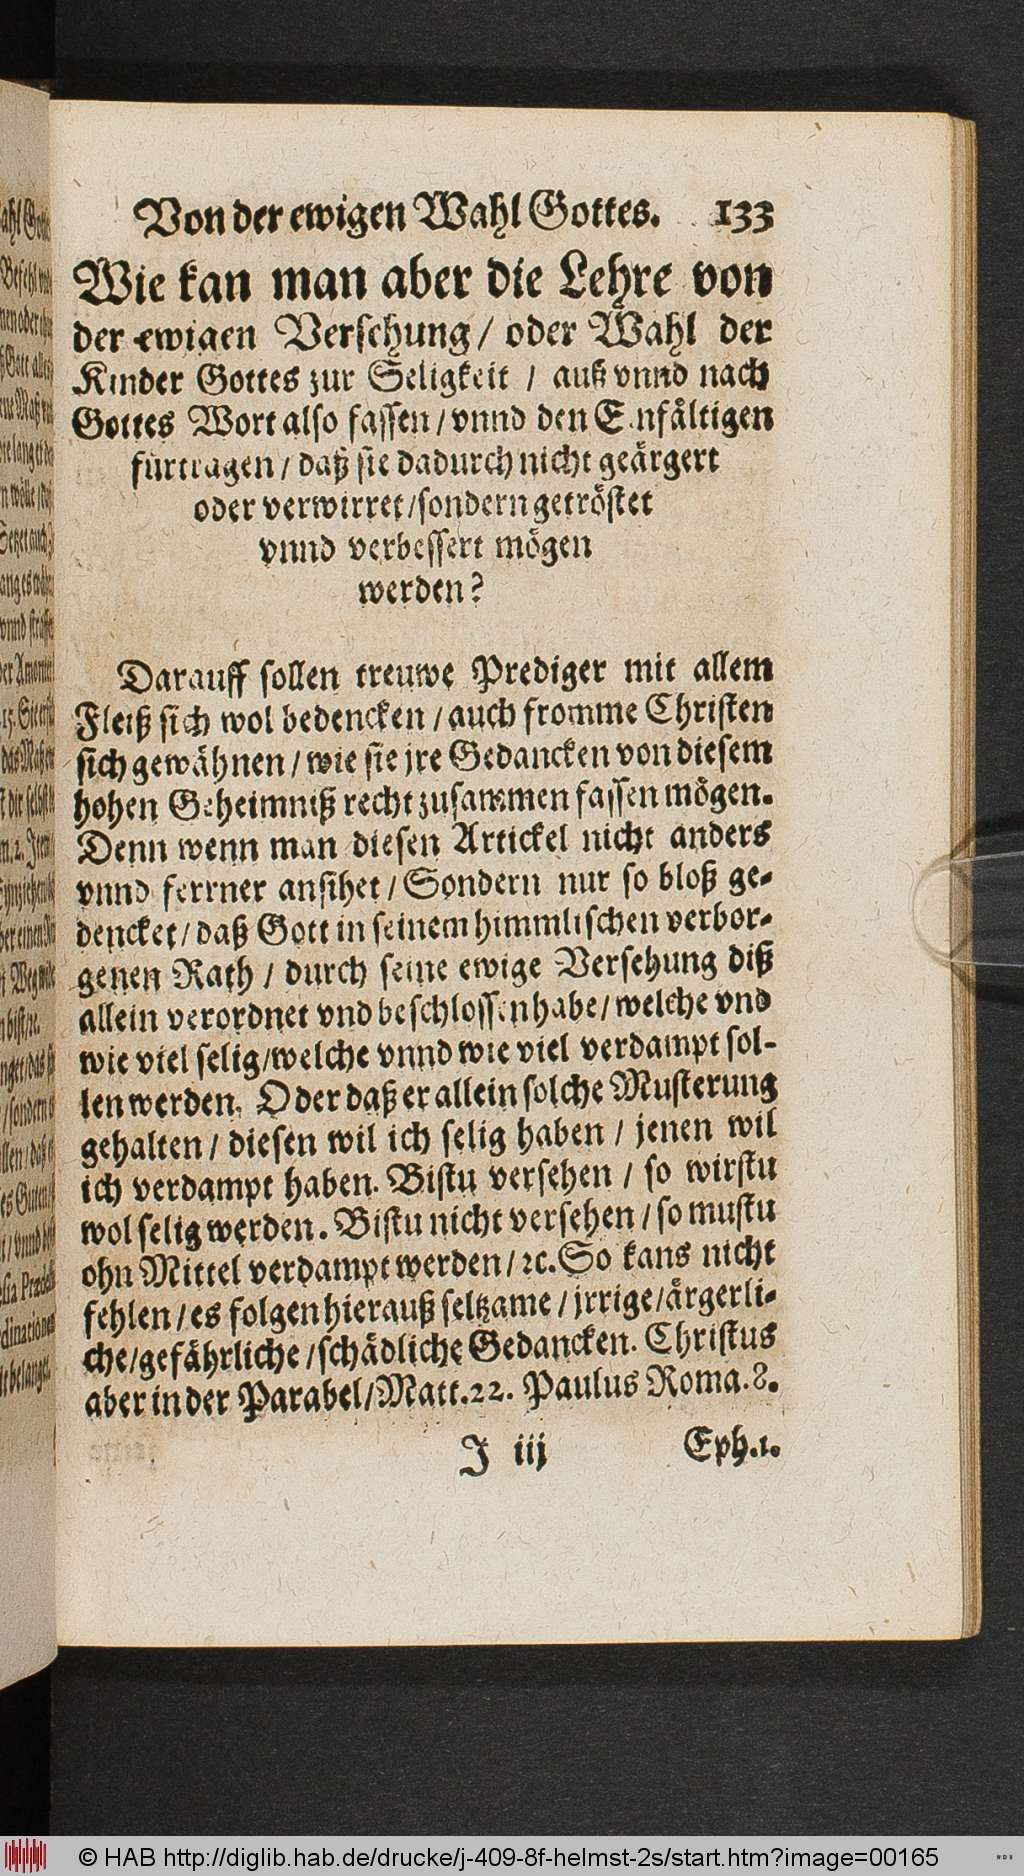 Von der ewigen Wahl Gottes. 133
Wie kan man aber die Lehre von
der ewigen Versehung / oder Wahl der
Kinder Gottes zur Seligkeit / auß vnnd nach
Gottes Wort also fassen / vnnd den Einfältigen
fürtragen / daß sie dadurch nicht geärgert
oder verwirret / sondern getröstet
vnnd verbessert mögen
werden?
Darauff sollen treuwe Prediger mit allem
Fleiß sich wol bedencken / auch fromme Christen
sich gewähnen / wie sie jre Gedancken von diesem
hohen Geheimniß recht zusammen fassen mögen.
Denn wenn man diesen Artickel nicht anders
vnnd ferrner ansihet / Sondern nur so bloß ge-
dencket / daß Gott in seinem himmlischen verbor-
genen Rath / durch seine ewige Versehung diß
allein verordnet vnd beschlossen habe / welche vnd
wie viel selig / welche vnnd wie viel verdampt sol-
len werden. Oder daß er allein solche Musterung
gehalten / diesen wil ich selig haben / jenen wil
ich verdampt haben. Bistu versehen / so wirstu
wol selig werden. Bistu nicht versehen / so mustu
ohn Mittel verdampt werden / ꝛc. So kans nicht
fehlen / es folgen hierauß seltzame / jrrige / ärgerli-
che / gefährliche / schädliche Gedancken. Christus
aber in der Parabel / Matt. 22. Paulus Roma. 8.
J iij Eph. 1.
© HAB http://diglib.hab.de/drucke/j-409-8f-helmst-2s/start.htm?image=00165